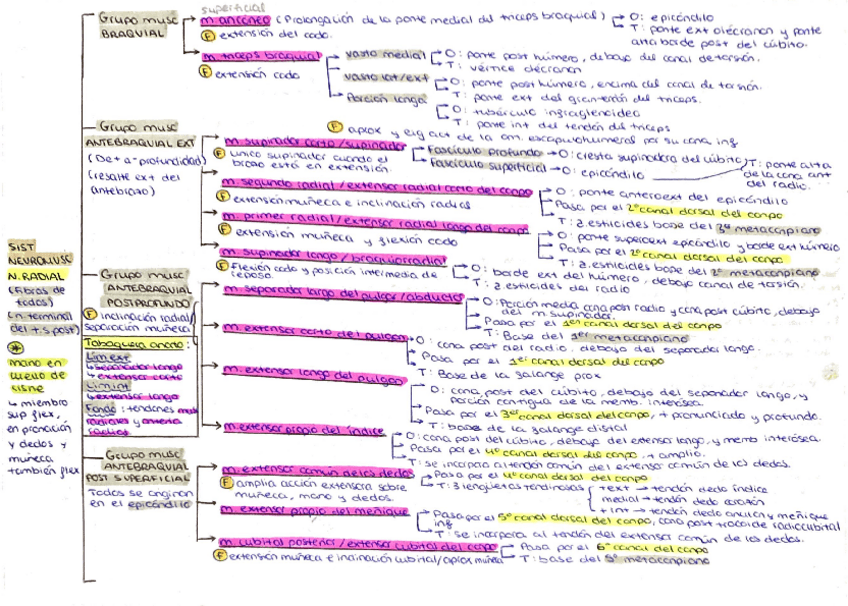 superficial
Grupo musc
BRAQUIAL
m. ancóneo (Prolongación de la parte medial del triceps braquial)
O: epicóndilo
T: parte ext olécranon y parte
alta borde post del cúbito.
F extensión del codo.
m. triceps braquial
F extensión codo
vasto medial
O: parte post húmero, debajo del canal de torsión.
T: vértice olécranon
vasto lat/ext
O: parte post húmero, encima del canal de torsión.
T: parte ext del tendón del triceps.
Porción longa
O: tubérculo infraglenoideo
T: parte int del tendón del triceps
F aprox y en act de la art. escapulohumeral por su cara inf
Grupo musc
ANTEBRAQUIAL EXT
(De + a - profundidad)
(resalte ext del
antebrazo)
m. supinador corto/supinador
F único supinador cuando el
brazo está en extensión.
Fascículo profundo
O: cresta supinadora del cúbito
Fascículo superficial
O: epicóndilo
T: parte alta
de la cara ant
del radio.
m. segundo radial/extensor radial corto del carpo
F extensión muñeca e inclinación radial
O: parte anteroext del epicóndilo
Pasa por el 2º canal dorsal del carpo
T: z. estiloides base del 3º metacarpiano
m. primer radial/extensor radial largo del carpo
F extensión muñeca y flexión codo
O: parte superoext epicóndilo y borde ext húmero
Pasa por el 2º canal dorsal del carpo
T: z. estiloides base del 2º metacarpiano
m. supinador longo/braquiorradial
F flexión codo y posición intermedia de
reposo
O: borde ext del húmero, debajo canal de torsión.
T: z estiloides del radio
SIST
NEUROMUSC
N. RADIAL
(Fibras de
todos)
(n. terminal
del t s post)
mano en
cuello de
cisne
↳ miembro
sup flex,
en pronación
y dedos y
muñeca
también flex
Grupo musc
ANTEBRAQUIAL
POST PROFUNDO
F inclinación radial/
separación muñeca
Tabaquera anato:
Lim ext
↳ separador longo
↳ extensor corto
Lim int
↳ extensor longo
Fondo: tendones
radiales y arteria
radial
m. separador largo del pulgar/abductor
O: Porción media cara post radio y cara post cúbito, debajo
del m. supinador.
Pasa por el 1er canal dorsal del carpo
T: Base del 1er metacarpiano
m. extensor corto del pulgar
O: cara post del radio, debajo del separador longo.
Pasa por el 1er canal dorsal del carpo
T: Base de la falange prox
m. extensor longo del pulgar
O: cara post del cúbito, debajo del separador longo, y
porción contigua de la memb. interósea.
Pasa por el 3er canal dorsal del carpo, + pronunciado y profundo.
T: base de la falange distal
m. extensor propio del índice
O: cara post del cúbito, debajo del extensor longo, y memb interósea.
Pasa por el 4º canal dorsal del carpo, + amplio.
T: se incorpora al tendón común del extensor común de los dedos.
Grupo musc
ANTEBRAQUIAL
POST SUPERFICIAL
Todos se originan
en el epicóndilo
m. extensor común de los dedos
F amplia acción extensora sobre
muñeca, mano y dedos.
Pasa por el 4º canal dorsal del carpo
T: 3 lengüetas tendinosas
+ ext → tendón dedo índice
medial → tendón dedo corazón
+ int → tendón dedo anular y meñique
m. extensor propio del meñique
Pasa por el 5º canal dorsal del carpo, cara post trocoide radiocubital
inf
T: se incorpora al tendón del extensor común de los dedos.
m. cubital posterior/extensor cubital del carpo
F extensión muñeca e inclinación cubital/aprox muñeca
Pasa por el 6º canal del carpo
T: base del 5º metacarpiano